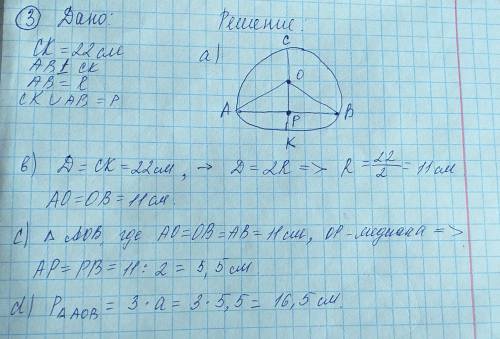 ③ Дано: Решение:
CK = 22 см
AB ⊥ CK
AB = R
CK ∪ AB = P
a)
C
O
A
P
B
K
в) D = CK = 22 см, → D = 2R => R = 22/2 = 11 см
AO = OB = 11 см.
c) △ AOB, где AO = OB = AB = 11 см, OP - медиана =>
AP = PB = 11 : 2 = 5,5 см
d) P△AOB = 3 · a = 3 · 5,5 = 16,5 см.